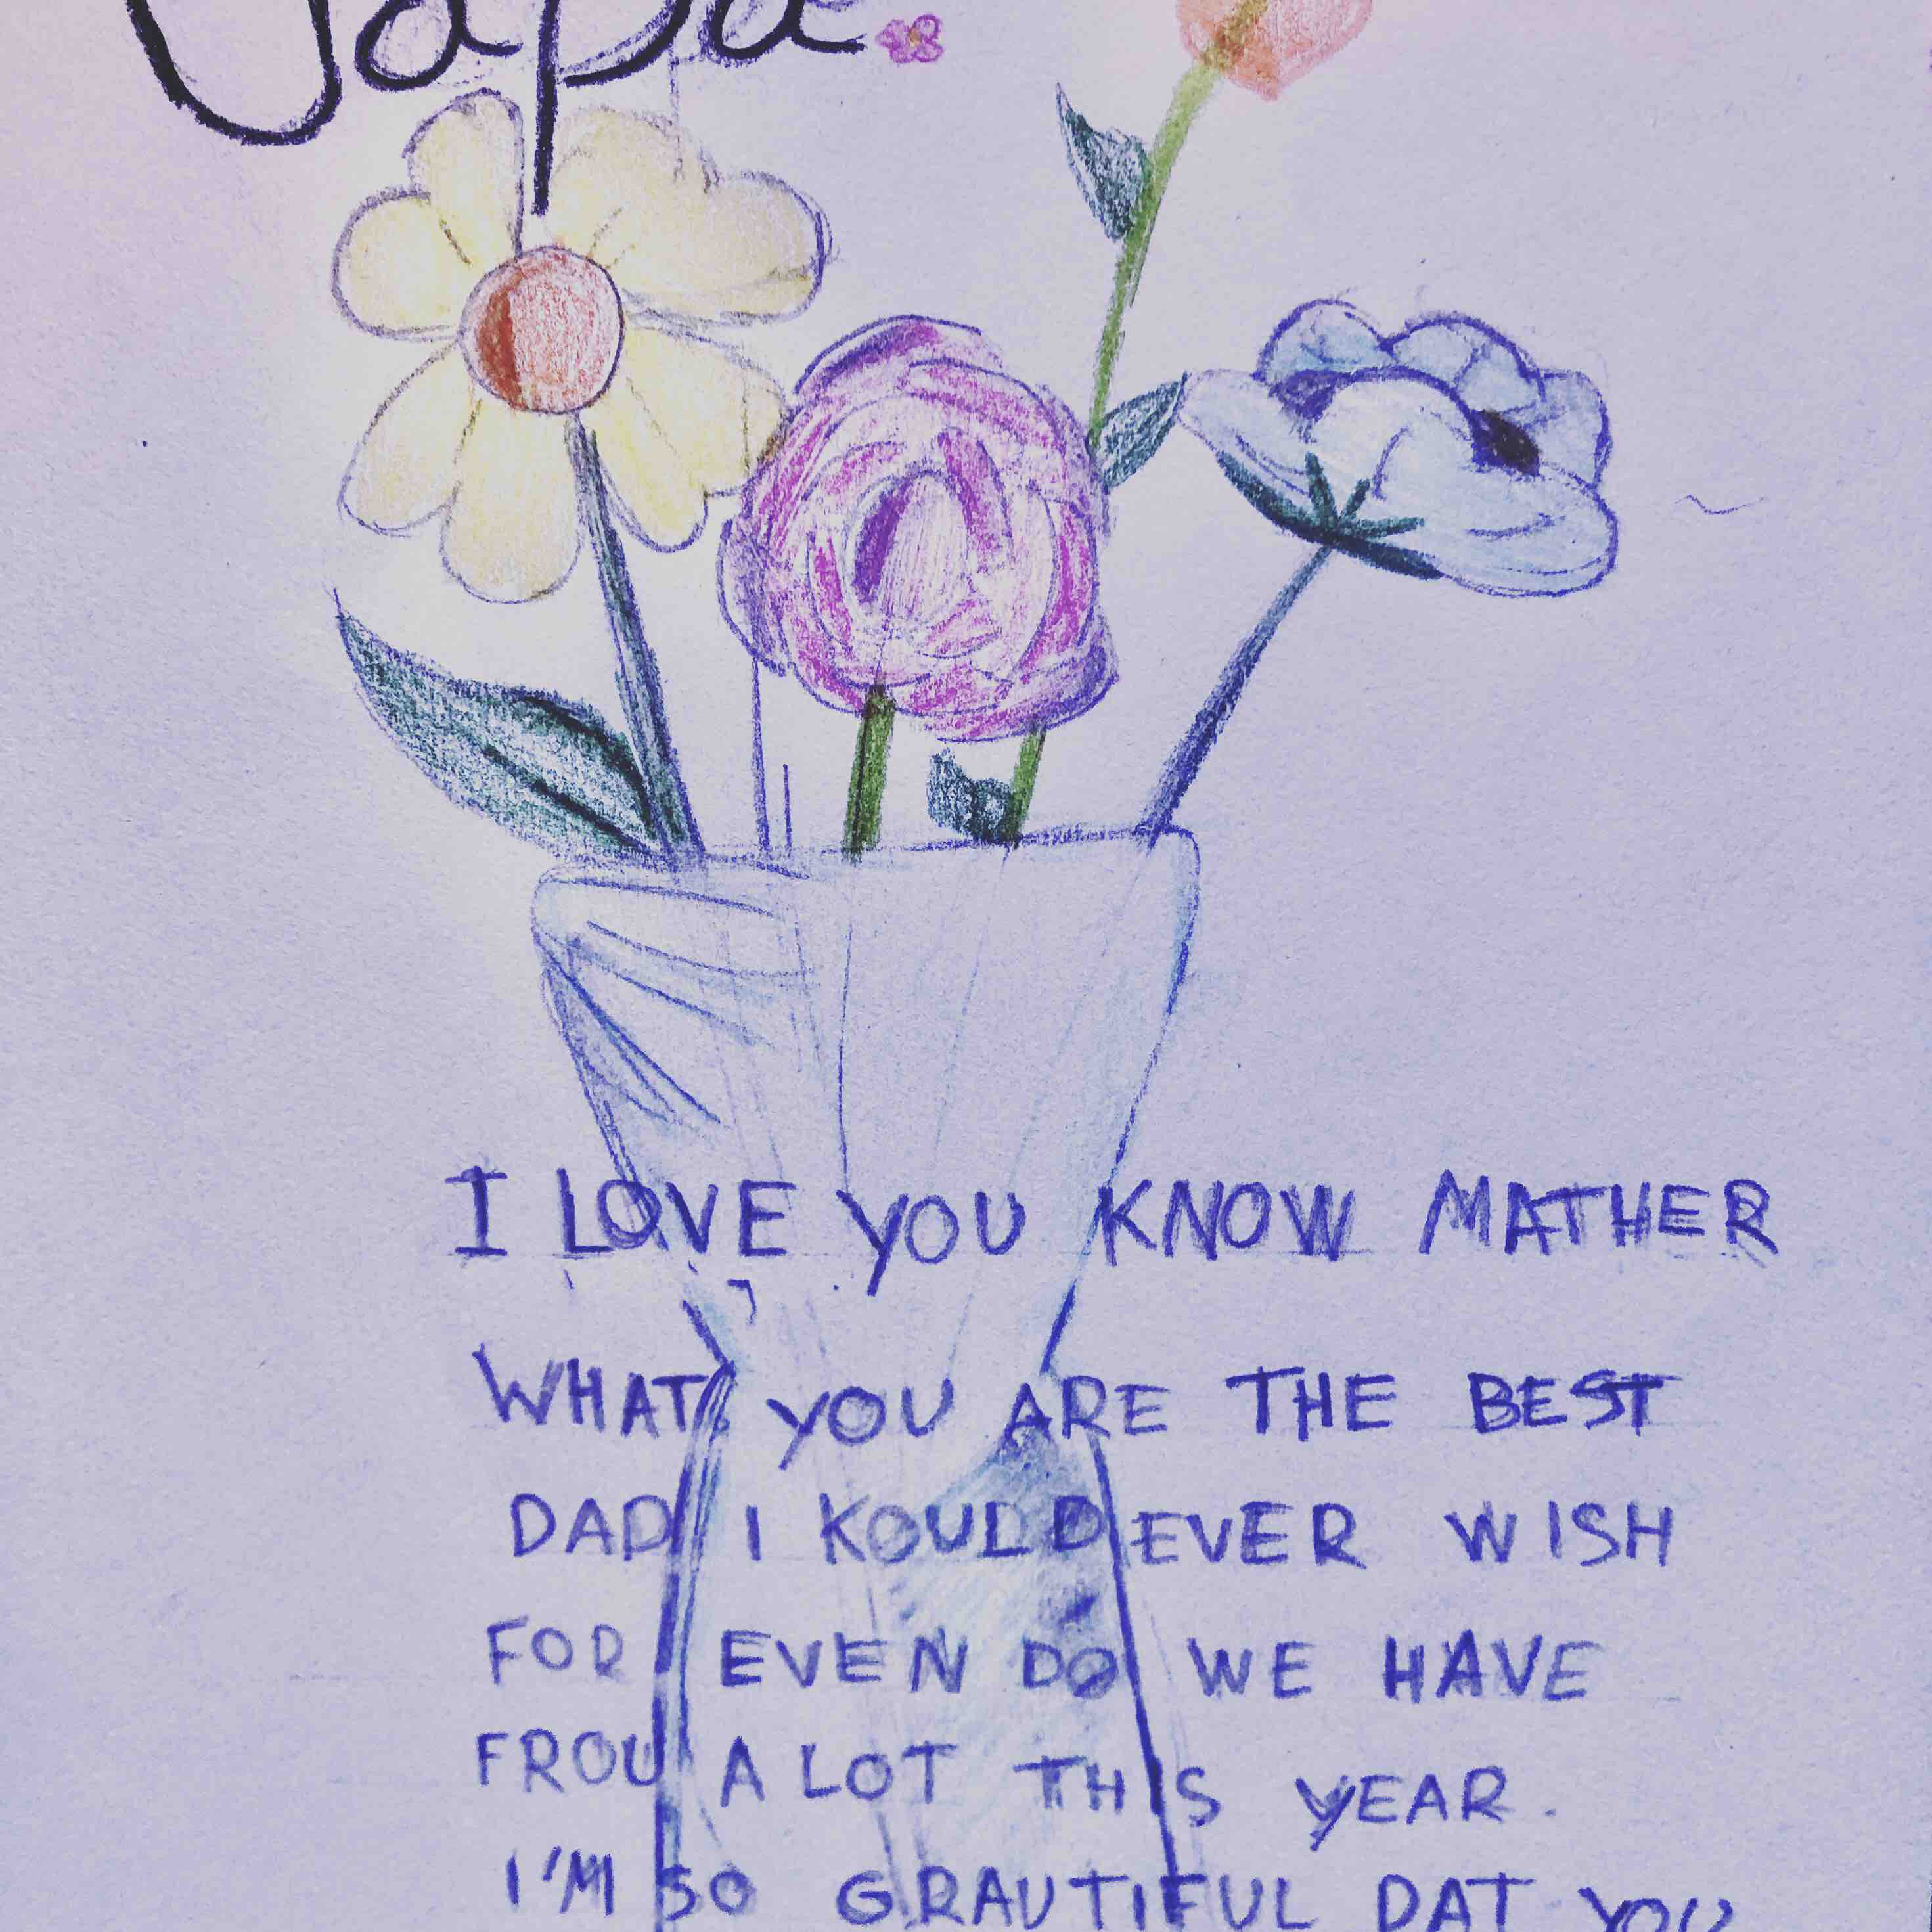 Papa
I LOVE YOU KNOW MATHER
WHAT YOU ARE THE BEST
DAD I KOULD EVER WISH
FOR EVEN DO WE HAVE
FROU A LOT THIS YEAR.
I'M SO GRAUTIFUL DAT YOU